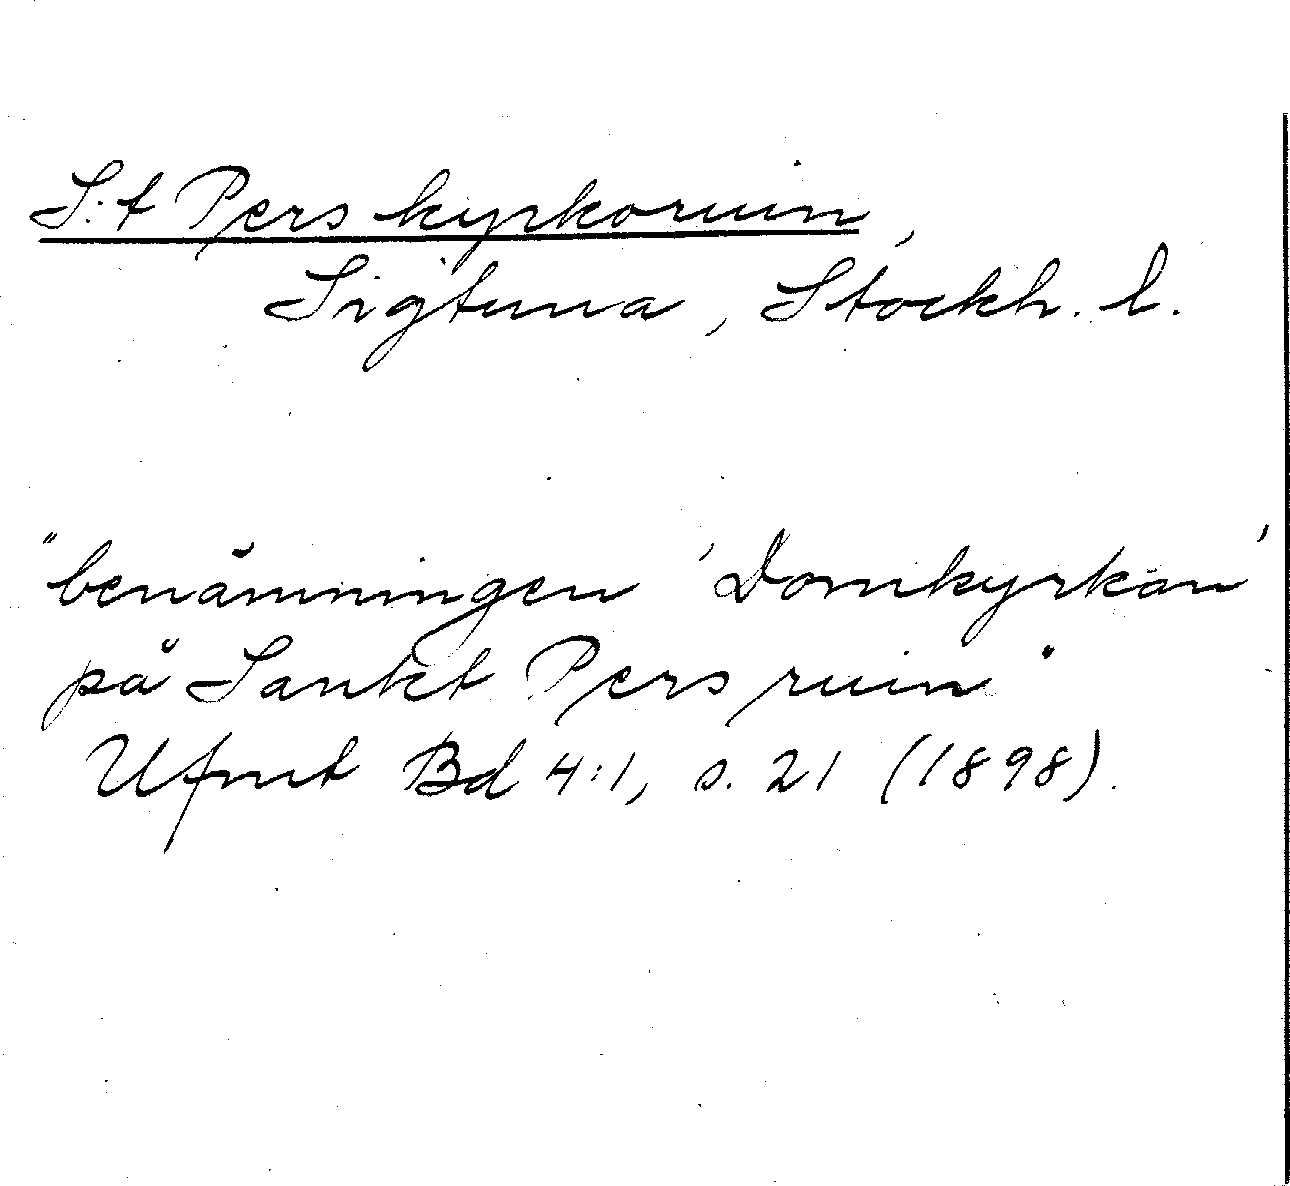 S:t Pers kyrkoruin,
Sigtuna, Stockh. l.
"benämningen 'Domkyrkan'
på Sankt Pers ruin"
Ufmt Bd 4:1, s. 21 (1898).